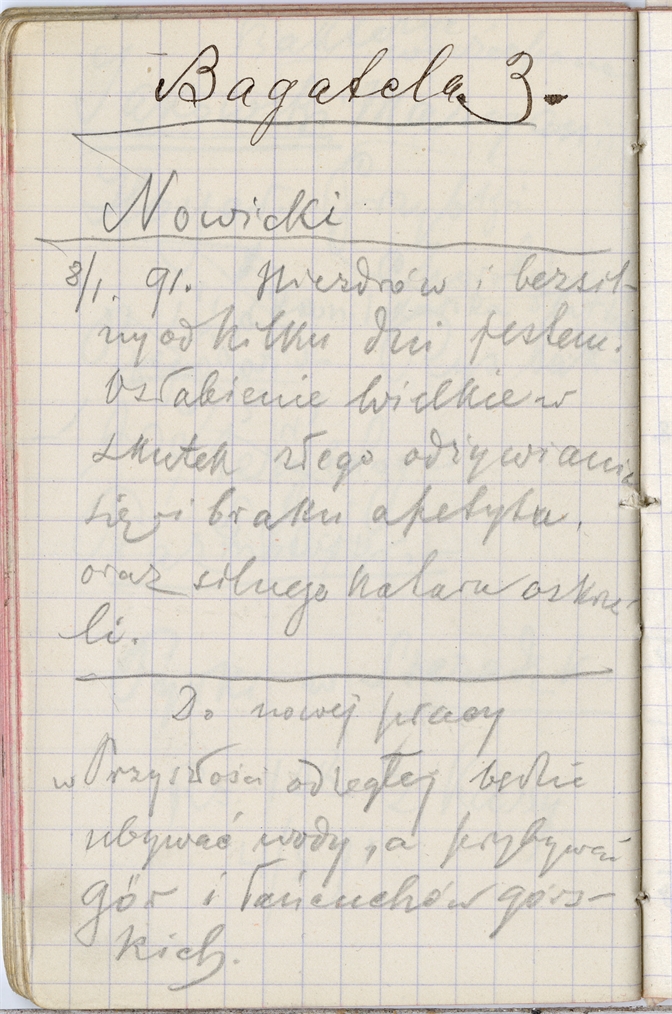 Bagatela 3.
Nowicki
8/1. 91. Niezdrów i bezsil-
ny od kilku dni jestem.
Osłabienie wielkie w
skutek złego odżywiania
się i braku apetytu,
oraz silnego kataru oskrze
li.
Do nowej pracy
w Przyszłości odległej będzie
ubywać wody, a przybywać
gór i łańcuchów górs-
kich.